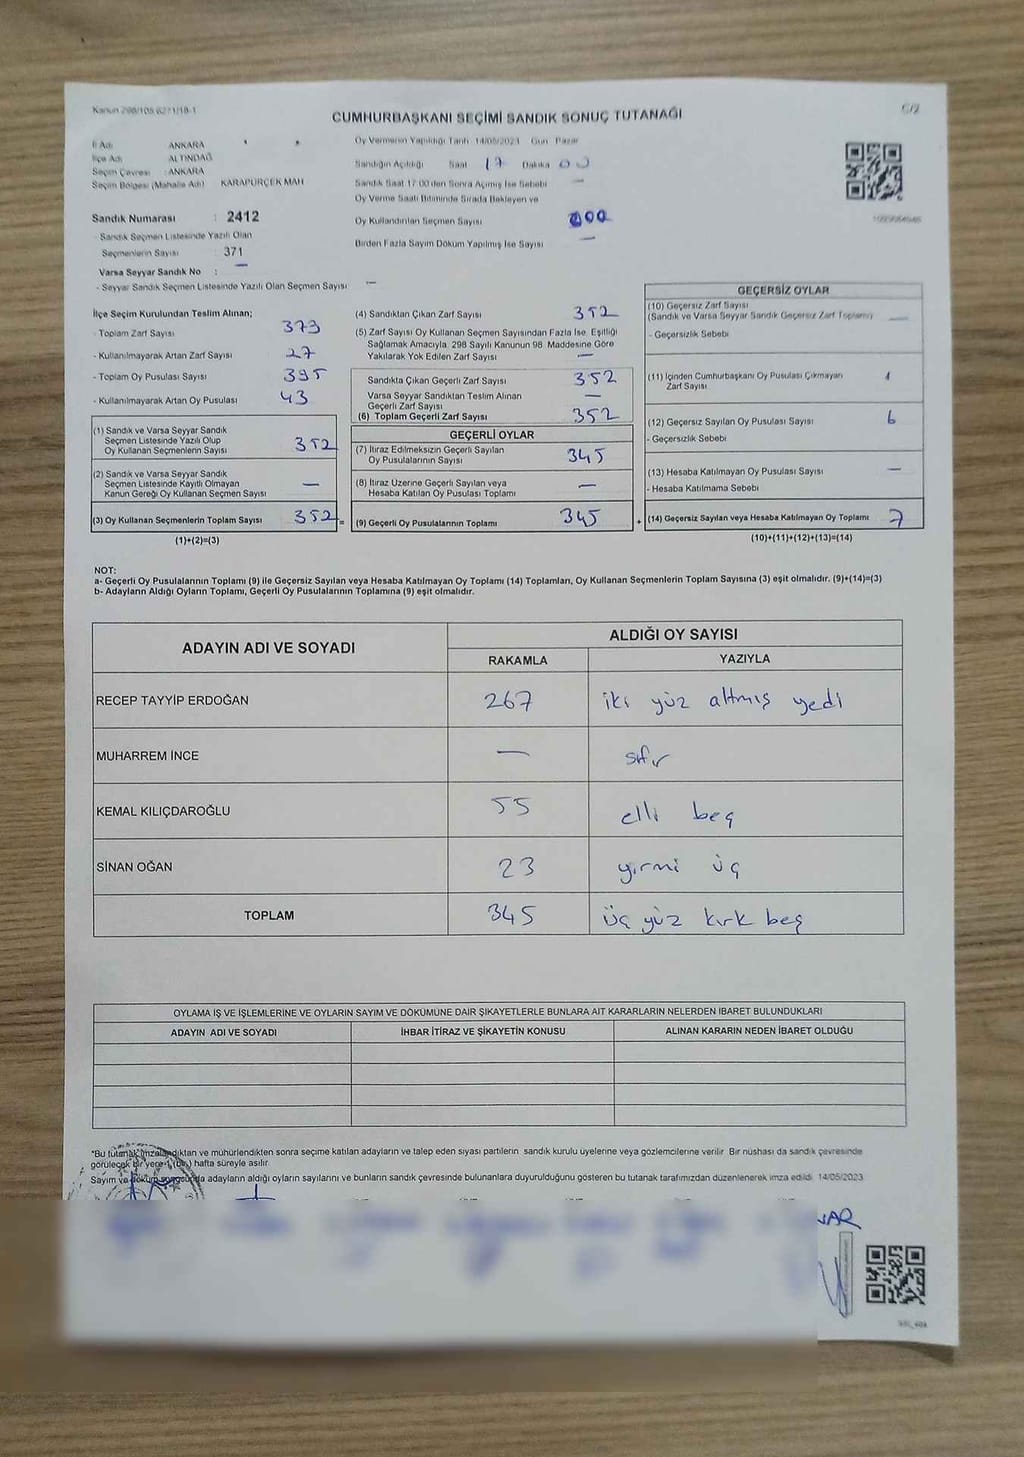 Kanun 298/105,6271/18-1
C/2
CUMHURBAŞKANI SEÇİMİ SANDIK SONUÇ TUTANAĞI
İl Adı ANKARA
İlçe Adı ALTINDAĞ
Seçim Çevresi : ANKARA
Seçim Bölgesi (Mahalle Adı) KARAPÜRÇEK MAH
Sandık Numarası : 2412
- Sandık Seçmen Listesinde Yazılı Olan
Seçmenlerin Sayısı : 371
Varsa Seyyar Sandık No : —
- Seyyar Sandık Seçmen Listesinde Yazılı Olan Seçmen Sayısı —
Oy Vermenin Yapıldığı Tarih 14/05/2023 Gün Pazar
Sandığın Açıldığı Saat 17 Dakika 00
Sandık Saat 17:00'den Sonra Açılmış İse Sebebi —
Oy Verme Saati Bitiminde Sırada Bekleyen ve
Oy Kullandırılan Seçmen Sayısı
Birden Fazla Sayım Döküm Yapılmış İse Sayısı —
İlçe Seçim Kurulundan Teslim Alınan;
- Toplam Zarf Sayısı 373
- Kullanılmayarak Artan Zarf Sayısı 27
- Toplam Oy Pusulası Sayısı 395
- Kullanılmayarak Artan Oy Pusulası 43
(1) Sandık ve Varsa Seyyar Sandık
Seçmen Listesinde Yazılı Olup
Oy Kullanan Seçmenlerin Sayısı 352
(2) Sandık ve Varsa Seyyar Sandık
Seçmen Listesinde Kayıtlı Olmayan
Kanun Gereği Oy Kullanan Seçmen Sayısı —
(3) Oy Kullanan Seçmenlerin Toplam Sayısı 352 =
(1)+(2)=(3)
(4) Sandıktan Çıkan Zarf Sayısı 352
(5) Zarf Sayısı Oy Kullanan Seçmen Sayısından Fazla İse, Eşitliği
Sağlamak Amacıyla, 298 Sayılı Kanunun 98. Maddesine Göre
Yakılarak Yok Edilen Zarf Sayısı —
Sandıkta Çıkan Geçerli Zarf Sayısı 352
Varsa Seyyar Sandıktan Teslim Alınan
Geçerli Zarf Sayısı —
(6) Toplam Geçerli Zarf Sayısı 352
GEÇERLİ OYLAR
(7) İtiraz Edilmeksizin Geçerli Sayılan
Oy Pusulalarının Sayısı 345
(8) İtiraz Üzerine Geçerli Sayılan veya
Hesaba Katılan Oy Pusulası Toplamı —
(9) Geçerli Oy Pusulalarının Toplamı 345 +
GEÇERSİZ OYLAR
(10) Geçersiz Zarf Sayısı
(Sandık ve Varsa Seyyar Sandık Geçersiz Zarf Toplamı) —
- Geçersizlik Sebebi
(11) İçinden Cumhurbaşkanı Oy Pusulası Çıkmayan
Zarf Sayısı 1
(12) Geçersiz Sayılan Oy Pusulası Sayısı 6
- Geçersizlik Sebebi
(13) Hesaba Katılmayan Oy Pusulası Sayısı —
- Hesaba Katılmama Sebebi
(14) Geçersiz Sayılan veya Hesaba Katılmayan Oy Toplamı 7
(10)+(11)+(12)+(13)=(14)
NOT:
a- Geçerli Oy Pusulalarının Toplamı (9) ile Geçersiz Sayılan veya Hesaba Katılmayan Oy Toplamı (14) Toplamları, Oy Kullanan Seçmenlerin Toplam Sayısına (3) eşit olmalıdır. (9)+(14)=(3)
b- Adayların Aldığı Oyların Toplamı, Geçerli Oy Pusulalarının Toplamına (9) eşit olmalıdır.
ADAYIN ADI VE SOYADI
ALDIĞI OY SAYISI
RAKAMLA YAZIYLA
RECEP TAYYİP ERDOĞAN 267 iki yüz altmış yedi
MUHARREM İNCE — sıfır
KEMAL KILIÇDAROĞLU 55 elli beş
SİNAN OĞAN 23 yirmi üç
TOPLAM 345 üç yüz kırk beş
OYLAMA İŞ VE İŞLEMLERİNE VE OYLARIN SAYIM VE DÖKÜMÜNE DAİR ŞİKAYETLERLE BUNLARA AİT KARARLARIN NELERDEN İBARET BULUNDUKLARI
ADAYIN ADI VE SOYADI İHBAR İTİRAZ VE ŞİKAYETİN KONUSU ALINAN KARARIN NEDEN İBARET OLDUĞU
"Bu tutanak imzalandıktan ve mühürlendikten sonra seçime katılan adayların ve talep eden siyasi partilerin sandık kurulu üyelerine veya gözlemcilerine verilir. Bir nüshası da sandık çevresinde
görülecek bir yere 1 (bir) hafta süreyle asılır.
Sayım ve döküm sonucunda adayların aldığı oyların sayılarını ve bunların sandık çevresinde bulunanlara duyurulduğunu gösteren bu tutanak tarafımızdan düzenlenerek imza edildi. 14/05/2023